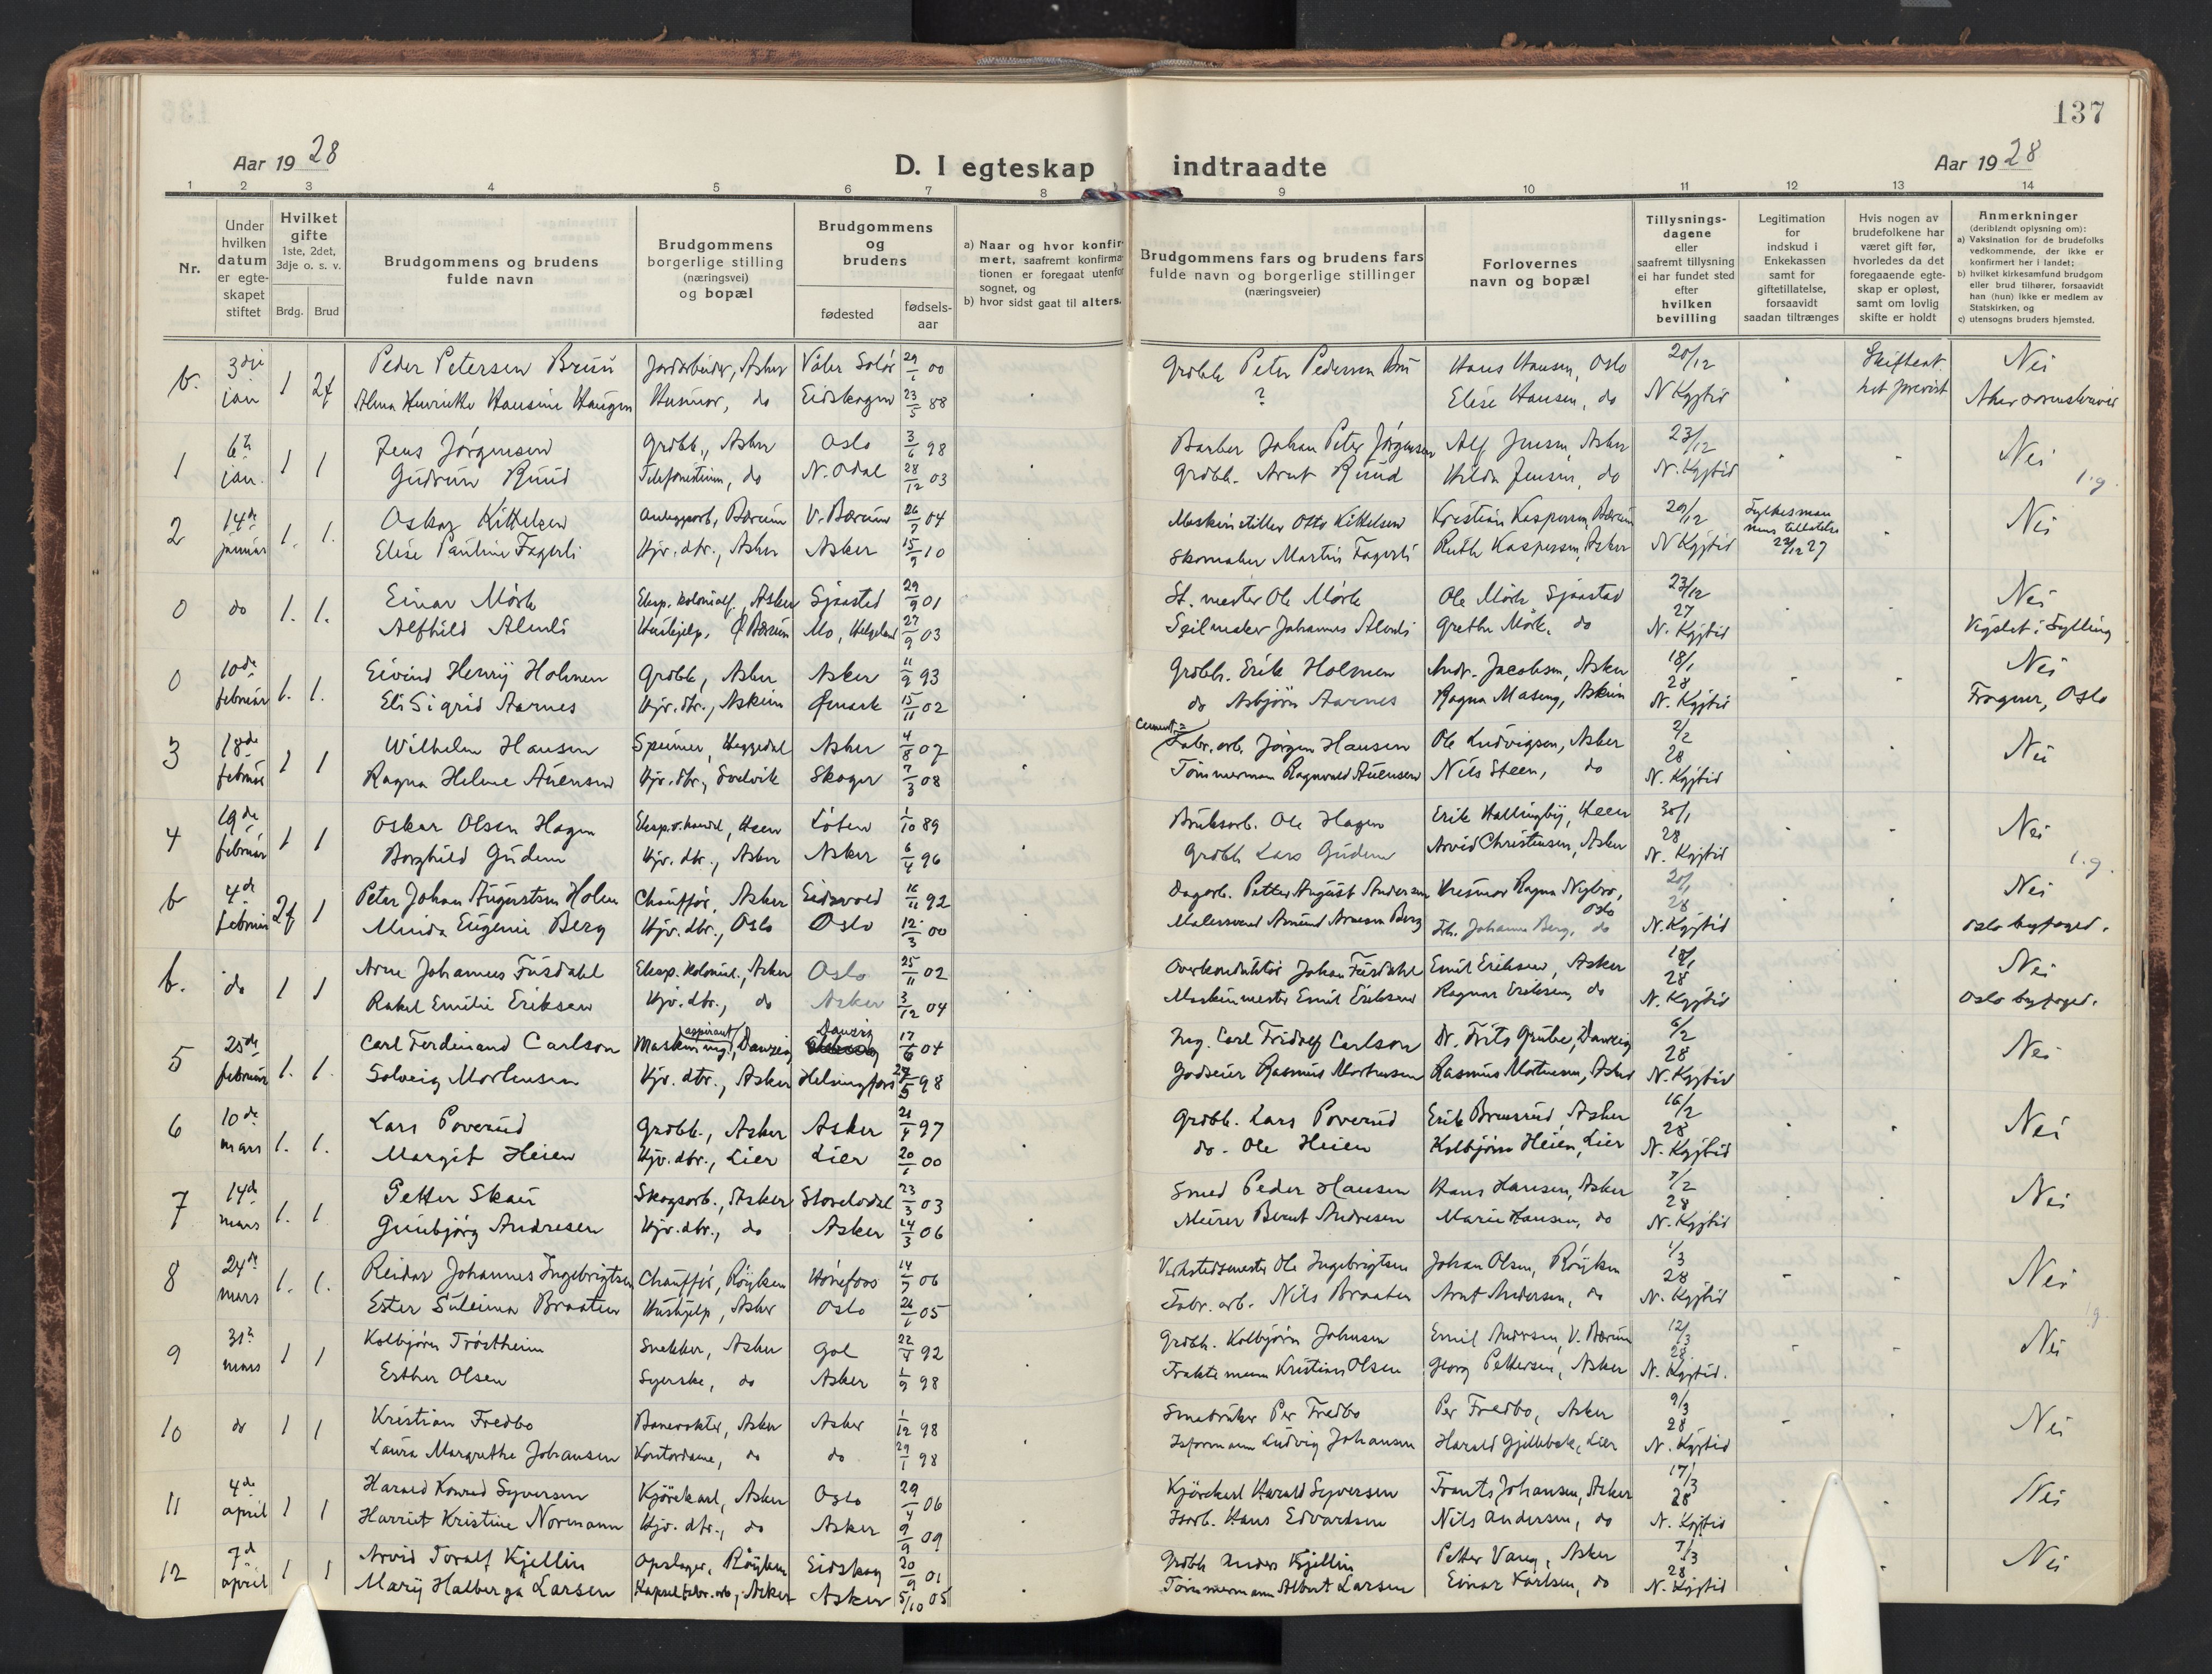 137
Aar 1928
D. I egteskap indtraadte
Aar 1928
1 2 3 4 5 6 7 8 9 10 11 12 13 14
Nr.
Under hvilken datum er egteskapet stiftet
Hvilket gifte 1ste, 2det, 3dje o. s. v.
Brdg. Brud
Brudgommens og brudens fulde navn
Brudgommens borgerlige stilling (næringsvei) og bopæl
Brudgommens og brudens
fødested
fødsels-aar
a) Naar og hvor konfirmert, saafremt konfirmationen er foregaat utenfor sognet, og
b) hvor sidst gaat til alters.
Brudgommens fars og brudens fars fulde navn og borgerlige stillinger (næringsveier)
Forlovernes navn og bopæl
Tillysnings-dagene eller saafremt tillysning ei har fundet sted efter hvilken bevilling
Legitimation for indskud i Enkekassen samt for giftetillatelse, forsaavidt saadan tiltrænges
Hvis nogen av brudefolkene har været gift før, hvorledes da det foregaaende egteskap er opløst, samt om lovlig skifte er holdt
Anmerkninger (deriblandt oplysning om):
a) Vaksination for de brudefolks vedkommende, der ikke er konfirmert her i landet;
b) hvilket kirkesamfund brudgom eller brud tilhører, forsaavidt han (hun) ikke er medlem av Statskirken, og
c) utensogns bruders hjemsted.
b. 3dje jan 1 2f Peder Petersen Bruu Jordarbeider, Asker Våler Solør 29/1 00 Grdbr. Peter Pedersen Hans Hansen, Oslo 20/12 Nei
Alma Henriette Hansine Haugen Husmor, do Eidskogen 23/5 88 ? Elise Hansen, do N Kgjtid
1 6te jan. 1 1 Jens Jörgensen Grdbr., Asker Oslo 3/6 98 Barber Johan Peter Jörgensen Alf Jensen, Asker 23/12 Nei
Gudrun Ruud Telefonistinne, do N. Odal 28/12 03 Grdbr. Arnt Ruud Hilda Jensen, do N. Kgjtid 1.g.
2 14de januar 1. 1. Oskar Kittelsen Anleggsarb., Bærum V. Bærum 26/7 04 Maskinstiller Otto Kittelsen Kristian Kaspersen, Bærum 29/12 Fylkesmannens tillatelse 22/12 27 Nei
Elise Pauline Fagerli Hjv. dtr., Asker Asker 15/9 10 Skomaker Martin Fagerli Ruth Kaspersen, Asker N Kgjtid
0 do 1. 1. Einar Mörk Eksp. kolonialf., Asker Sjaastad 29/9 01 St. mester Ole Mörk Ole Mörk Sjaastad 23/12 27 Nei
Alfhild Alnuli Hushjelp, Ø Bærum Mo, Helgeland 27/9 03 Seilmaker Johannes Grethe Mörk, do N. Kgjtid Vigslet i Sylling
0 10de februar 1. 1. Eivind Henry Holmen Grdbr., Asker Asker 11/9 93 Grdbr. Erik Holmen Andr. Jacobsen, Asker 18/1 28 Nei
Eli Sigrid Aarnes Hjv. dtr., Askim Ømark 15/11 02 do Asbjörn Aarnes Ragna Maseng, Askim N. Kgjtid Frogner, Oslo
3 18de februar 1 1 Wilhelm Hansen Spinner, Heggedal Asker 4/8 07 Cement= Fabr. arb. Jörgen Hansen Ole Ludvigsen, Asker 2/2 28 Nei
Ragna Helene Auensen Hjv. dtr., Svelvik Skoger 7/3 08 Tömmermann Ragnvald Auensen Nils Steen, do N. Kgjtid
4 19de februar 1 1 Oskar Olsen Hagen Eksp. v. handel, Heen Löten 1/10 89 Bruksarb. Ole Hagen Erik Hallingby, Heen 30/1 28 Nei
Borghild Gudem Hjv. dtr., Asker Asker 6/4 96 Grdbr Lars Gudem Arvid Christensen, Asker N. Kgjtid 1.g.
b 4de februar 2f 1 Peter Johan Augustsen Holm Chaufför, Asker Eidsvold 16/11 92 Dagarb. Petter August Andersen Husmor Ragna Nybro, Oslo 20/1 28 Nei
Minda Eugenie Berg Hjv. dtr., Oslo Oslo 12/3 00 Malersvend Amund Arnesen Berg Frk. Johanne Berg, do N. Kgjtid Oslo byfoged.
b. do 1 1 Arne Johannes Fusdahl Eksp. Kolonial., Asker Oslo 25/11 02 Overkonduktör Johan Fusdahl Emil Eriksen, Asker 18/1 28 Nei
Rakel Emilie Eriksen Hjv. dtr., do Asker 3/12 04 Maskinmester Emil Eriksen Ragnar Eriksen, do N. Kgjtid Oslo byfoged.
5 25de februar 1. 1. Carl Ferdinand Carlson Maskining. aspirant, Danzig Danzig 17/6 04 Ing. Carl Fridolf Carlson Dr. Frits Grube, Danzig 6/2 28 Nei
Solveig Mortensen Hjv. dtr., Asker Helsingfors 27/5 98 Godseier Rasmus Mortensen Rasmus Mortensen, Asker N. Kgjtid
6 10de mars 1. 1. Lars Poverud Grdbr., Asker Asker 21/4 97 Grdbr. Lars Poverud Erik Brusrud, Asker 16/2 28 Nei
Margit Heien Hjv. dtr., Lier Lier 20/1 00 do. Ole Heien Kolbjörn Heien, Lier N. Kgjtid
7 14de mars 1. 1 Petter Skau Skogsarb., Asker Storelvdal 23/3 03 Smed Peder Hansen Hans Hansen, Asker 7/2 28 Nei
Gunbjörg Andresen Hjv. dtr., do Asker 24/3 06 Murer Bernt Andresen Marie Hansen, do N. Kgjtid
8 24de mars 1. 1. Reidar Johannes Ingebrigtsen Chaufför, Röyken Hönefoss 14/7 06 Verkstedsmester Ole Ingebrigtsen Johan Olsen, Röyken 1/3 28 Nei
Ester Suleima Braaten Hushjelp, Asker Oslo 26/1 05 Fabr. arb. Nils Braaten Arnt Andersen, do N. Kgjtid
9 31te mars 1 1 Kolbjörn Tröstheim Snekker, Asker Gol 22/4 92 Grdbr. Kolbjörn Johnsen Emil Andersen, V. Bærum 12/3 28 Nei
Esther Olsen Syerske, do Asker 1/9 98 Kristian Olsen Georg Pettersen, Asker N. Kgjtid.
10 do 1 1 Kristian Fredbo Banevokter, Asker Asker 1/12 98 Smabruker Per Fredbo Per Fredbo, Asker 9/3 28 Nei
Laura Margrethe Johansen Kontordame, do do 29/1 98 Isformann Ludvig Johansen Harald Gjellebek, Lier N. Kgjtid
11 4de april 1 1 Harald Konrad Syversen Kjörekarl, Asker Oslo 29/4 06 Kjörekarl Harald Syversen Frants Johansen, Asker 17/3 28 Nei
Harriet Kristine Normann Hjv. dtr., do Asker 9/9 09 Isarb. Hans Edvardsen Nils Andersen, do N. Kgjtid
12 7de april 1 1 Arvid Toralf Kjellin Opslager, Röyken Eidskog 20/9 01 Grdbr Anders Kjellin Petter Vang, Asker 7/3 28 Nei
Mary Halberga Larsen Kapselfabr. arb., Asker Asker 5/10 05 Tömmermann Albert Larsen Einar Karlsen, do N. Kgjtid